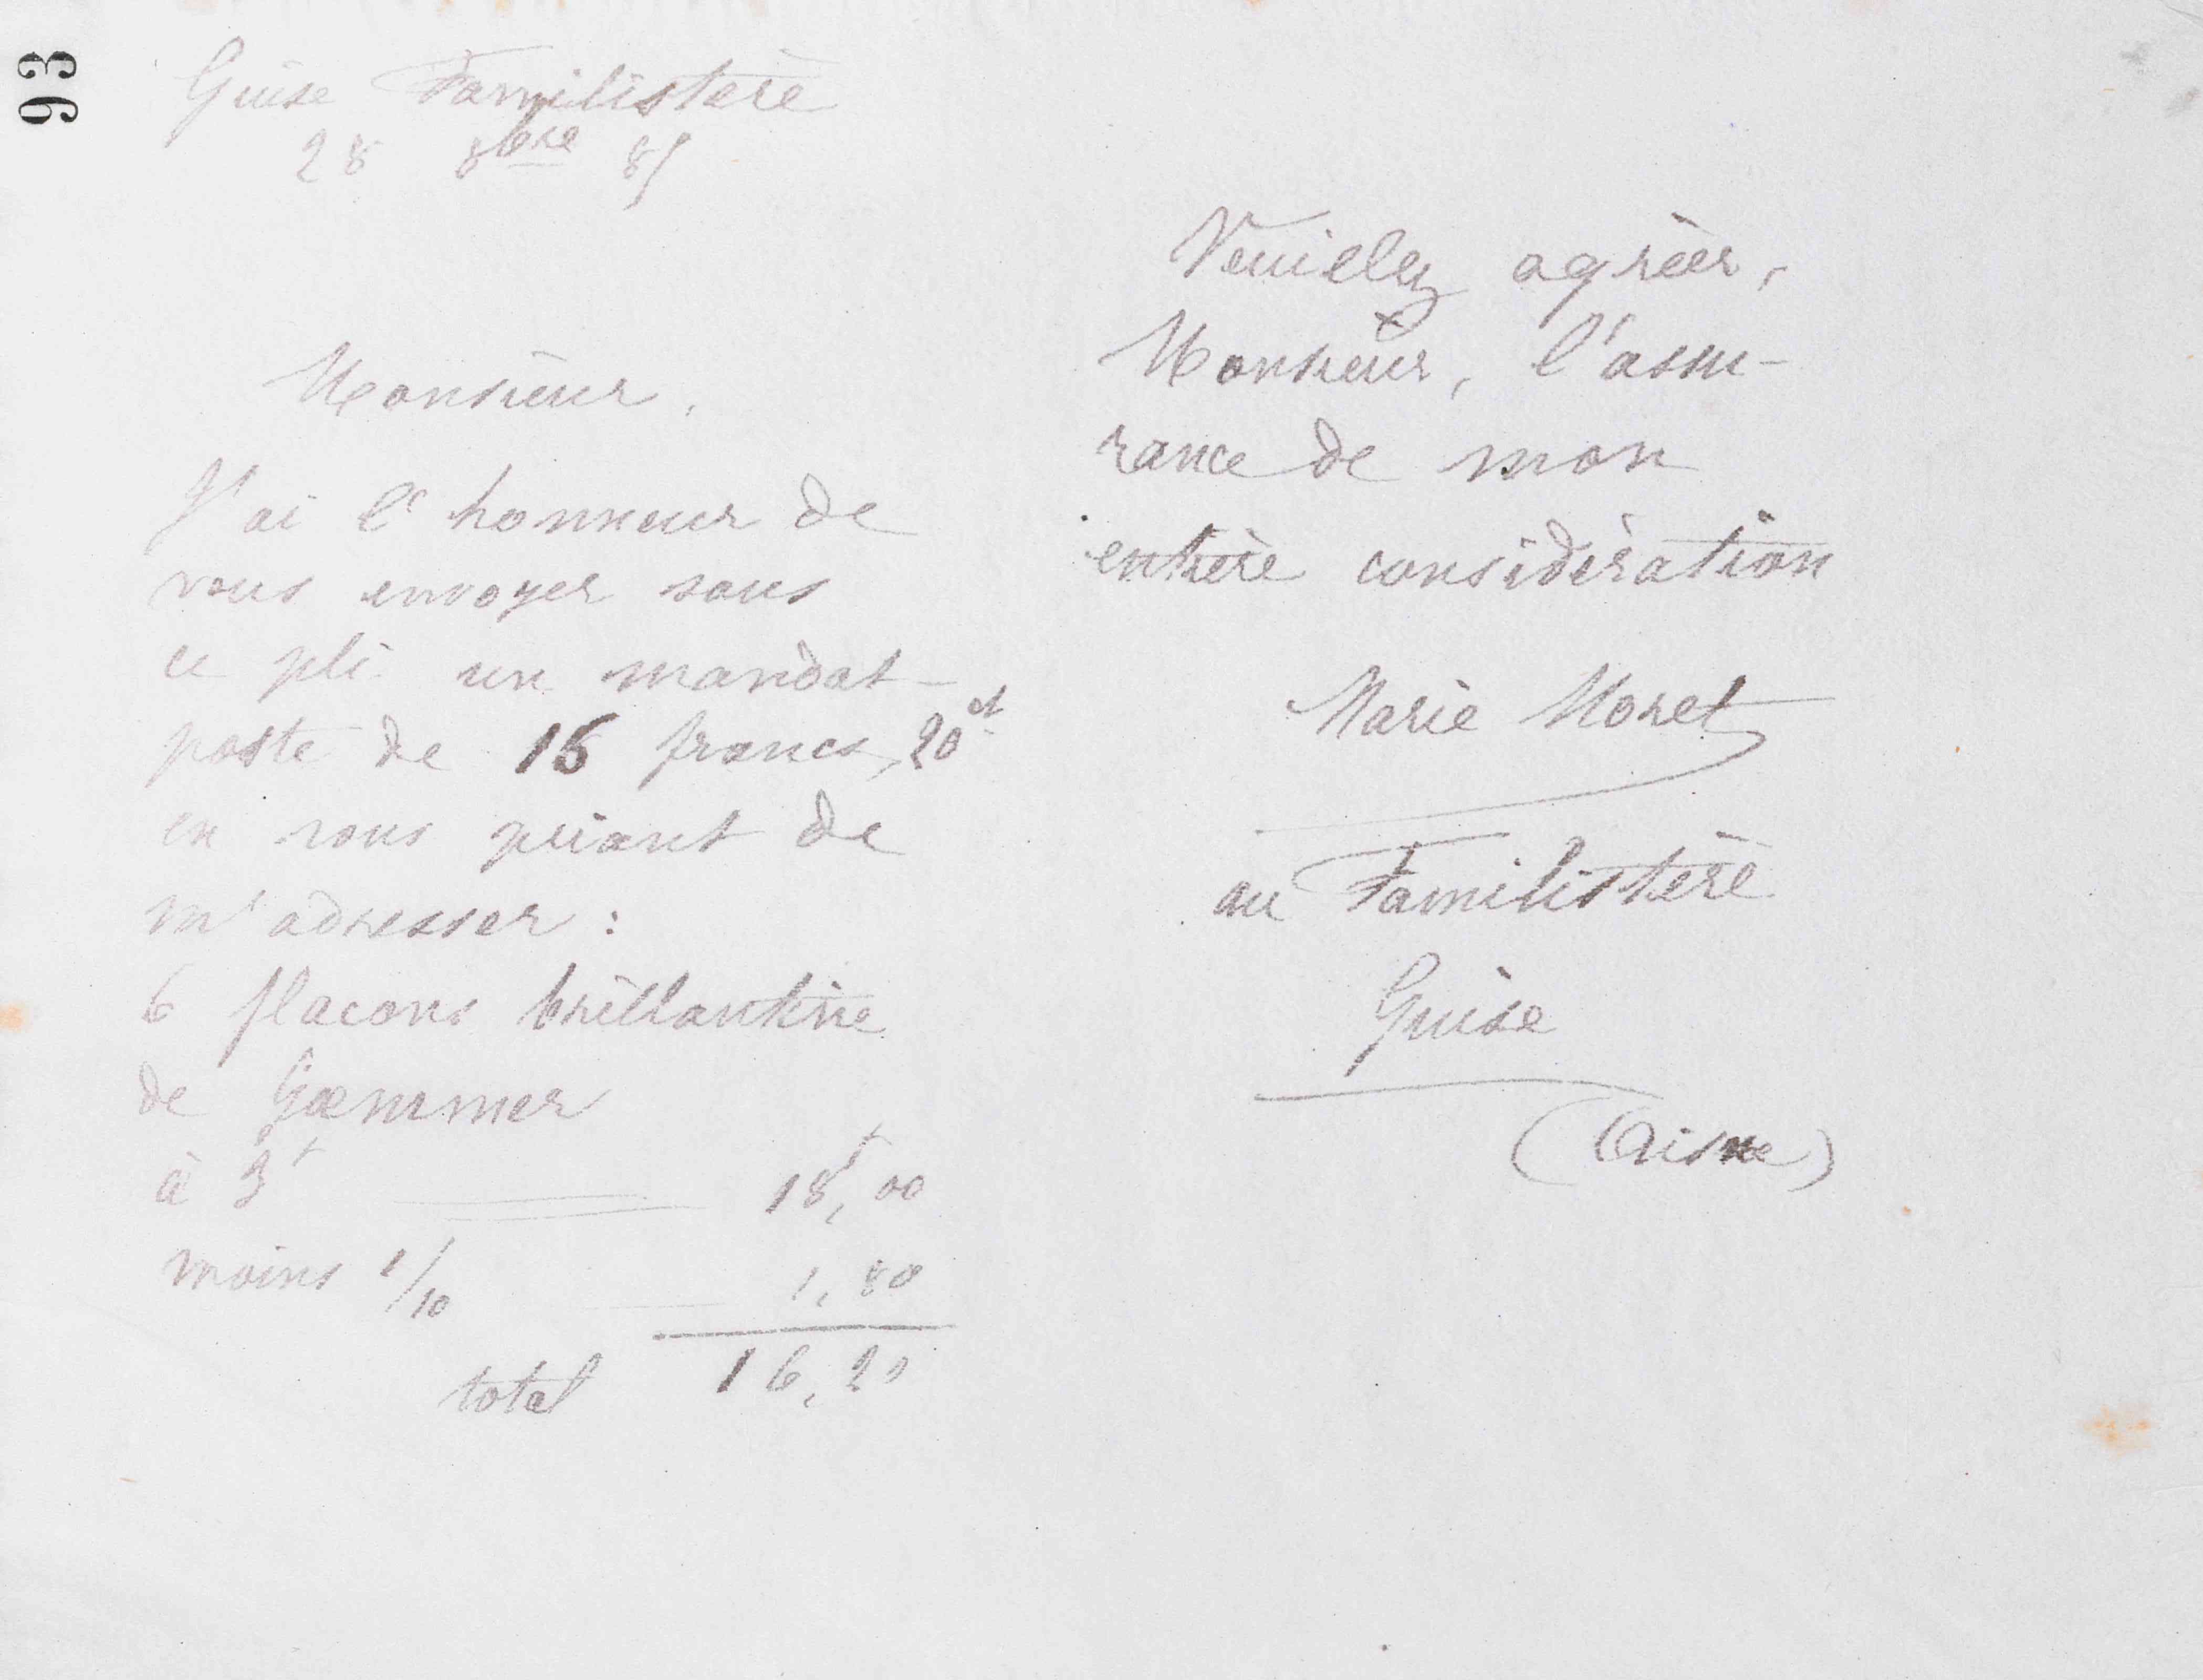 93
Guise Familistère
28 8bre 85
Monsieur,
J'ai l'honneur de
vous envoyer sous
ce pli un mandat-
poste de 16 francs, 20 ct
en vous priant de
m'adresser :
6 flacons brillantine
de Gæmmer
à 3f 18f,00
moins 1/10 1,80
total 16,20
Veuillez agréer,
Monsieur, l'assu-
rance de mon
entière considération
Marie Moret
au Familistère
Guise
(Aisne)